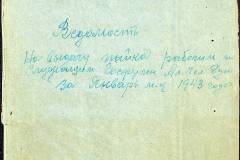 Ведомость
На выдачу пайка рабочим и
служащим
За Январь м-ц 1943 года